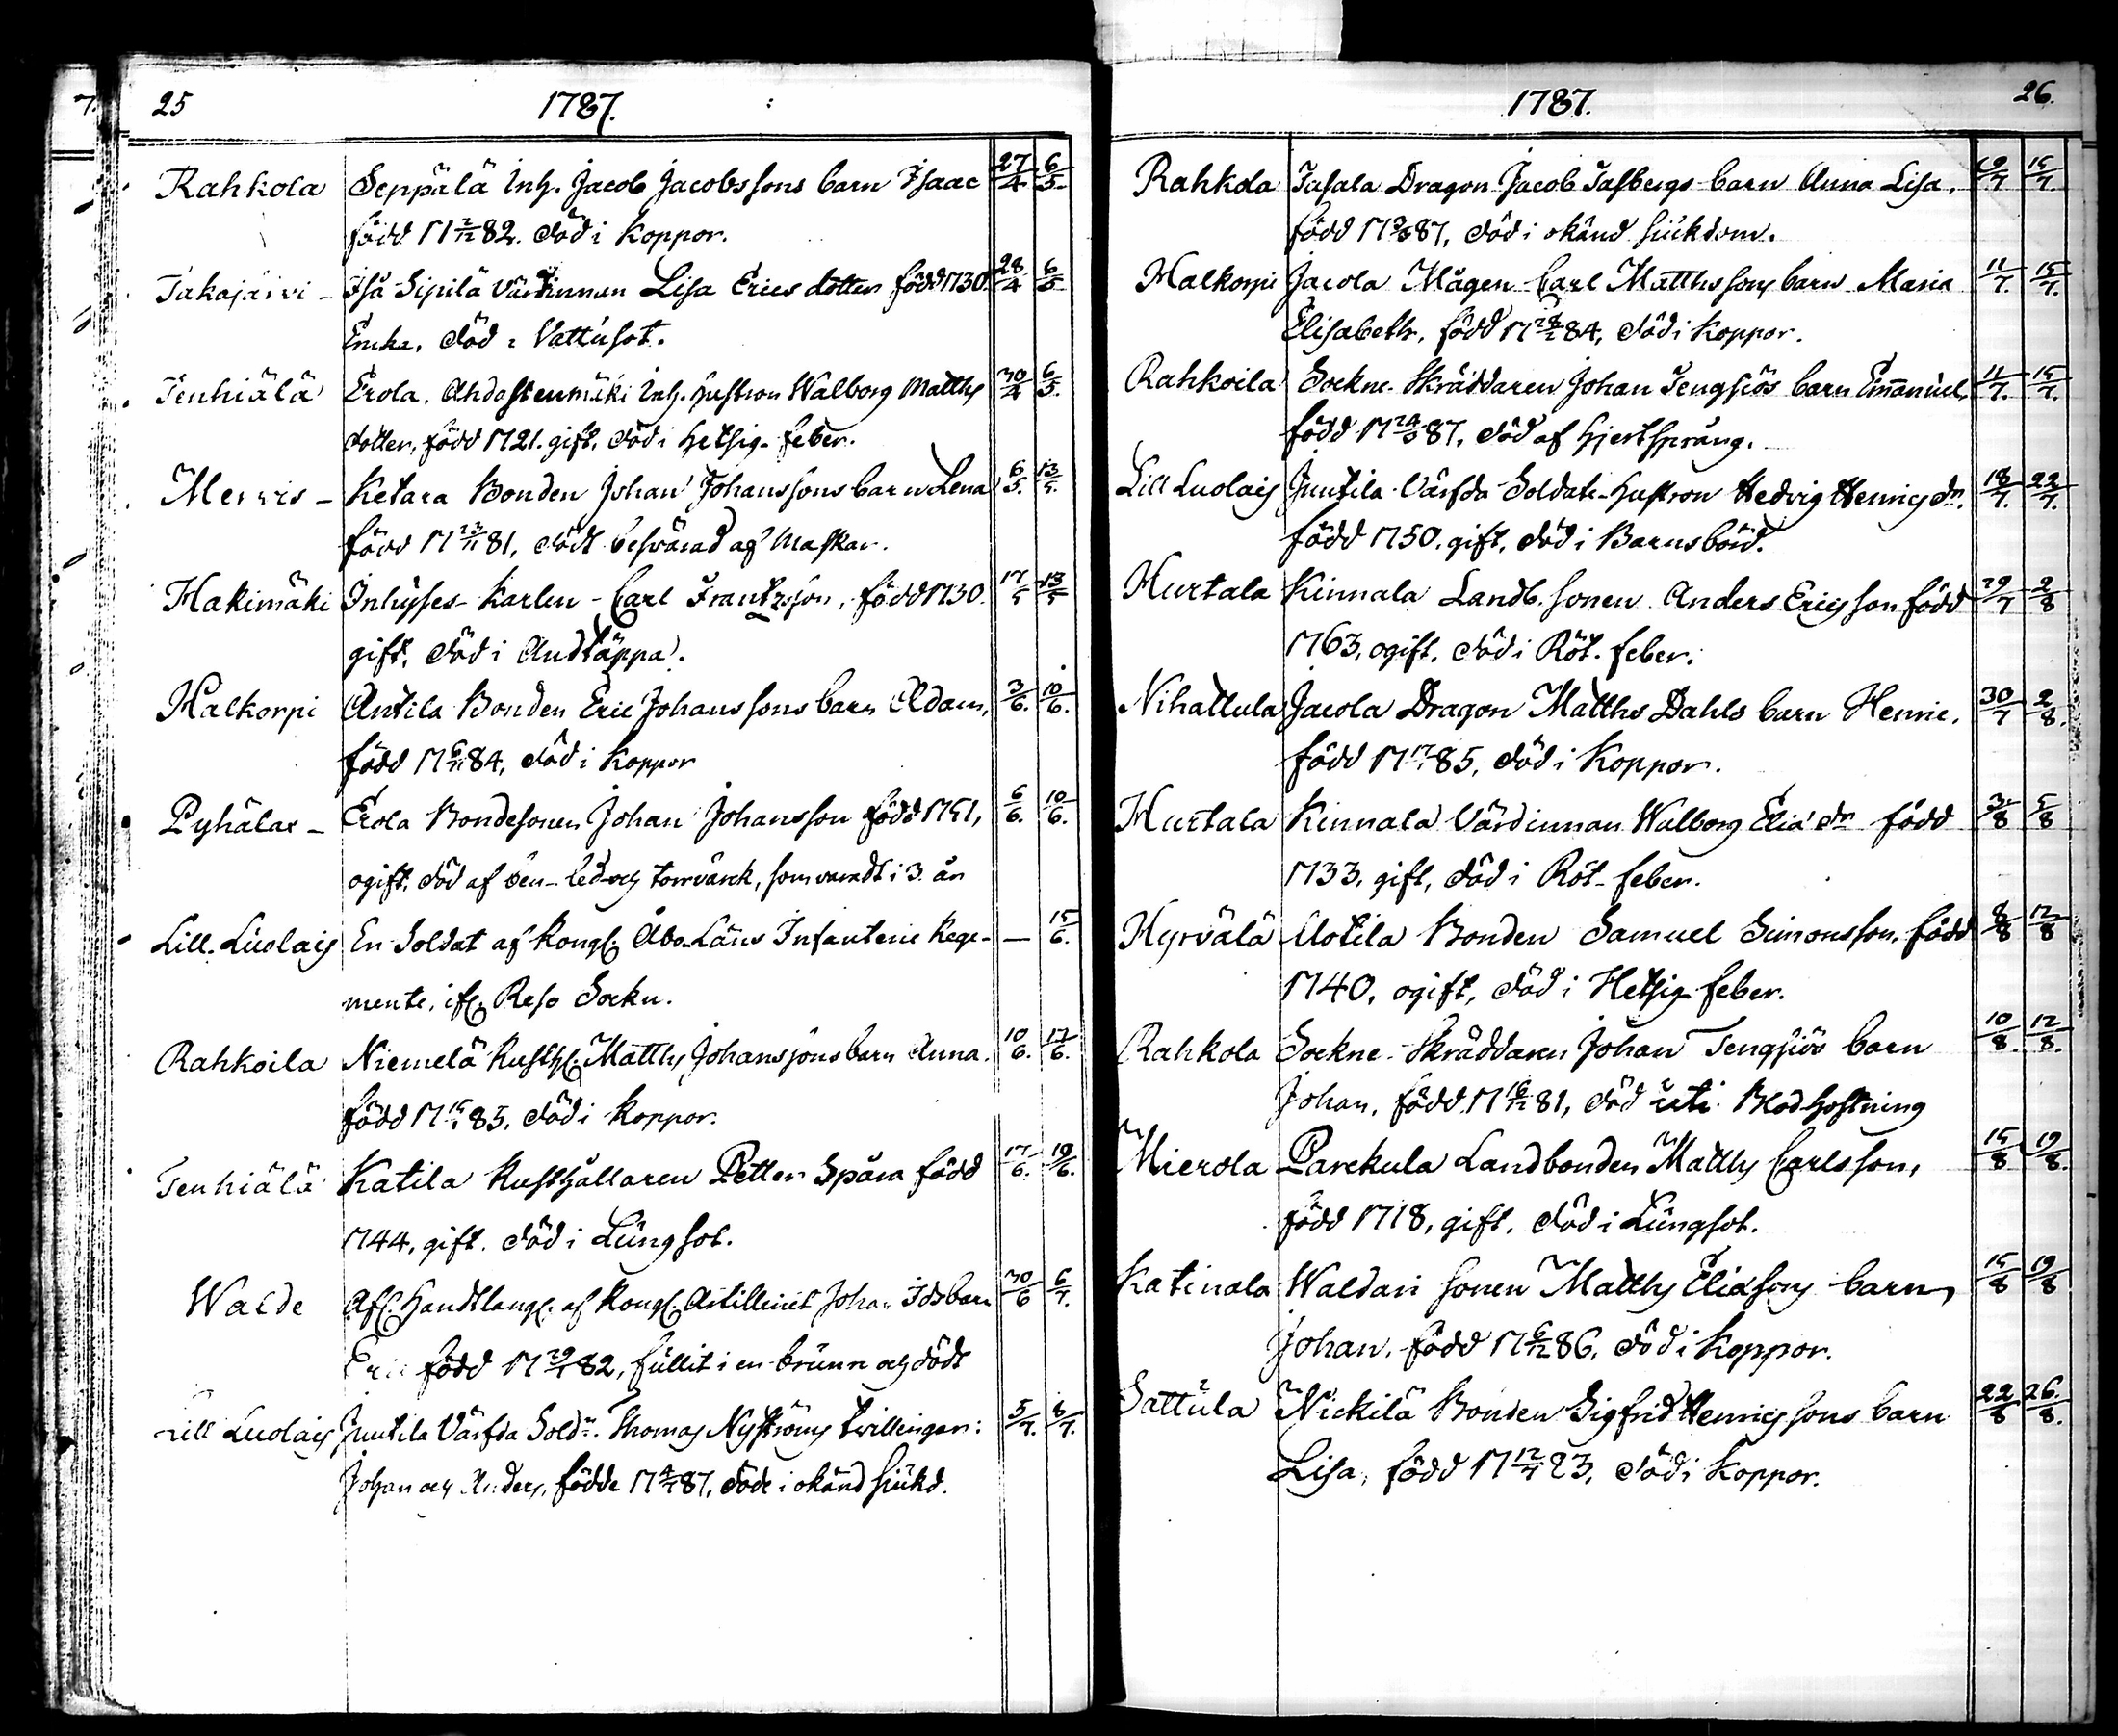 25 1787.
Rahkola Seppälä Inh. Jacob Jacobssons barn Isaac 27/4 6/5.
född 17 2/12 82. död i Koppor.
Takajärvi - Iså Sipilä Värdinnan Lisa Erics dotter född 1730 28/4 6/5
Encka, död i Vattusot.
Tenhiälä Erola. Ahdastenmäki Inh. hustron Walborg Matths 30/4 6/5.
dotter, född 1721. gift, död i hetsig-feber.
Mervis - Ketara Bonden Johan Johanssons barn Lena 6/5. 13/5.
född 17 23/11 81, dödt besvärad af Maskar.
Hakimäki Inhyses-Karlen - Carl Frantzsson, född 1730. 17/5 13/5
gift, död i Andtäppa.
Halkorpi Antila Bonden Eric Johanssons barn Adam, 3/6. 10/6.
född 17 6/11 84, död i Koppor
Pyhälax - Erola Bondesonen Johan Johansson född 1751, 6/6. 10/6.
ogift, död af ben-led och torrvärck, som varadt i 3. år
Lill. Luolais En Soldat af Kongl. Åbo Läns Infanterie Rege- — 15/6.
mente, ifr. Reso Sockn.
Rahkoila Niemelä Rusth. Matths Johanssons barn Anna. 10/6. 17/6.
född 17 85, död i Koppor.
Tenhiälä Katila Rusthållaren Petter Spåra född 17/6. 19/6.
1744, gift. död i Lungsot.
Walde Afsk. Handtlang. af Kongl. Artilleriet Johan Ids barn 30/6 6/7.
Eric född 17 29/4 82, fullit i en brunn och dödt
Lill Luolais Juutila Värfda Sold:n Thomas Nyströms tvillingar: 5/7. 6/7.
Johan och Anders, födde 17 4/7 87, döde i okänd siukd.
1787. 26.
Rahkola Tasala Dragon Jacob Tasbergs barn Anna Lisa, 10/7 15/7
född 17 87, död i okänd siukdom.
Halkorpi Jacola Mågen Carl Matthssons barn Maria 11/7. 15/7.
Elisabeth, född 17 84, död i Koppor.
Rahkoila Sockne-Skräddaren Johan Tengsiös barn Emanuel, 11/7. 15/7.
född 17 87, död af hjertsprång.
Lill Luolais Juutila Värfda Soldats-hustron Hedvig Henrics dr. 18/7. 22/7.
född 1750. gift, död i Barnsbörd.
Hurtala Kinnala Landb. sonen Anders Ericsson född 29/7 2/8
1763, ogift, död i Röt-feber.
Nihattula Jacola Dragon Matths Dahls barn Henric, 30/7 2/8.
född 17 85, död i Koppor.
Hurtala Kinnala Värdinnan Walborg Eliæ dr född 3/8 5/8
1733, gift, död i Röt-feber.
Hyrvälä Uotila Bonden Samuel Simonsson, född 8/8 12/8
1740, ogift, död i Hetsig feber.
Rahkola Sockne-Skräddaren Johan Tengsiös barn 10/8. 12/8.
Johan, född 17 16/12 81, död uti Blodhostning
Mierola Parckula Landbonden Matths Carlsson, 15/8 19/8.
född 1718, gift, död i Lungsot.
Katinala Waldari sonen Matths Eliasons barn 15/8 19/8
Johan, född 17 6/12 86, död i Koppor.
Sattula Nickilä Bonden Sigfrid Henricssons barn 22/8 26/8.
Lisa, född 17 12/7 83, död i Koppor.